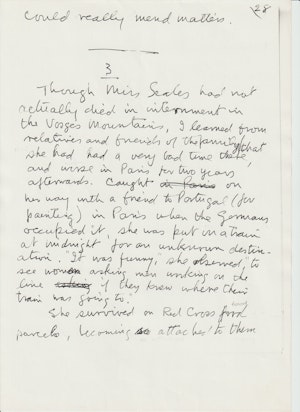 28
could really mend matters.
3
Though Miss Seales had not
actually died in internment in
the Vosges Mountains, I learned from
relatives and friends of the family that
she had had a very bad time there,
and worse in Paris for two years
afterwards. Caught in Paris on
her way with a friend to Portugal (for
painting) in Paris when the Germans
occupied it, she was put on a train
at midnight for an unknown destin-
ation. "It was funny," she observed, "to
see women asking men working on the
line if they knew where their
train was going to."
She survived on Red Cross food
parcels, becoming so attached to them